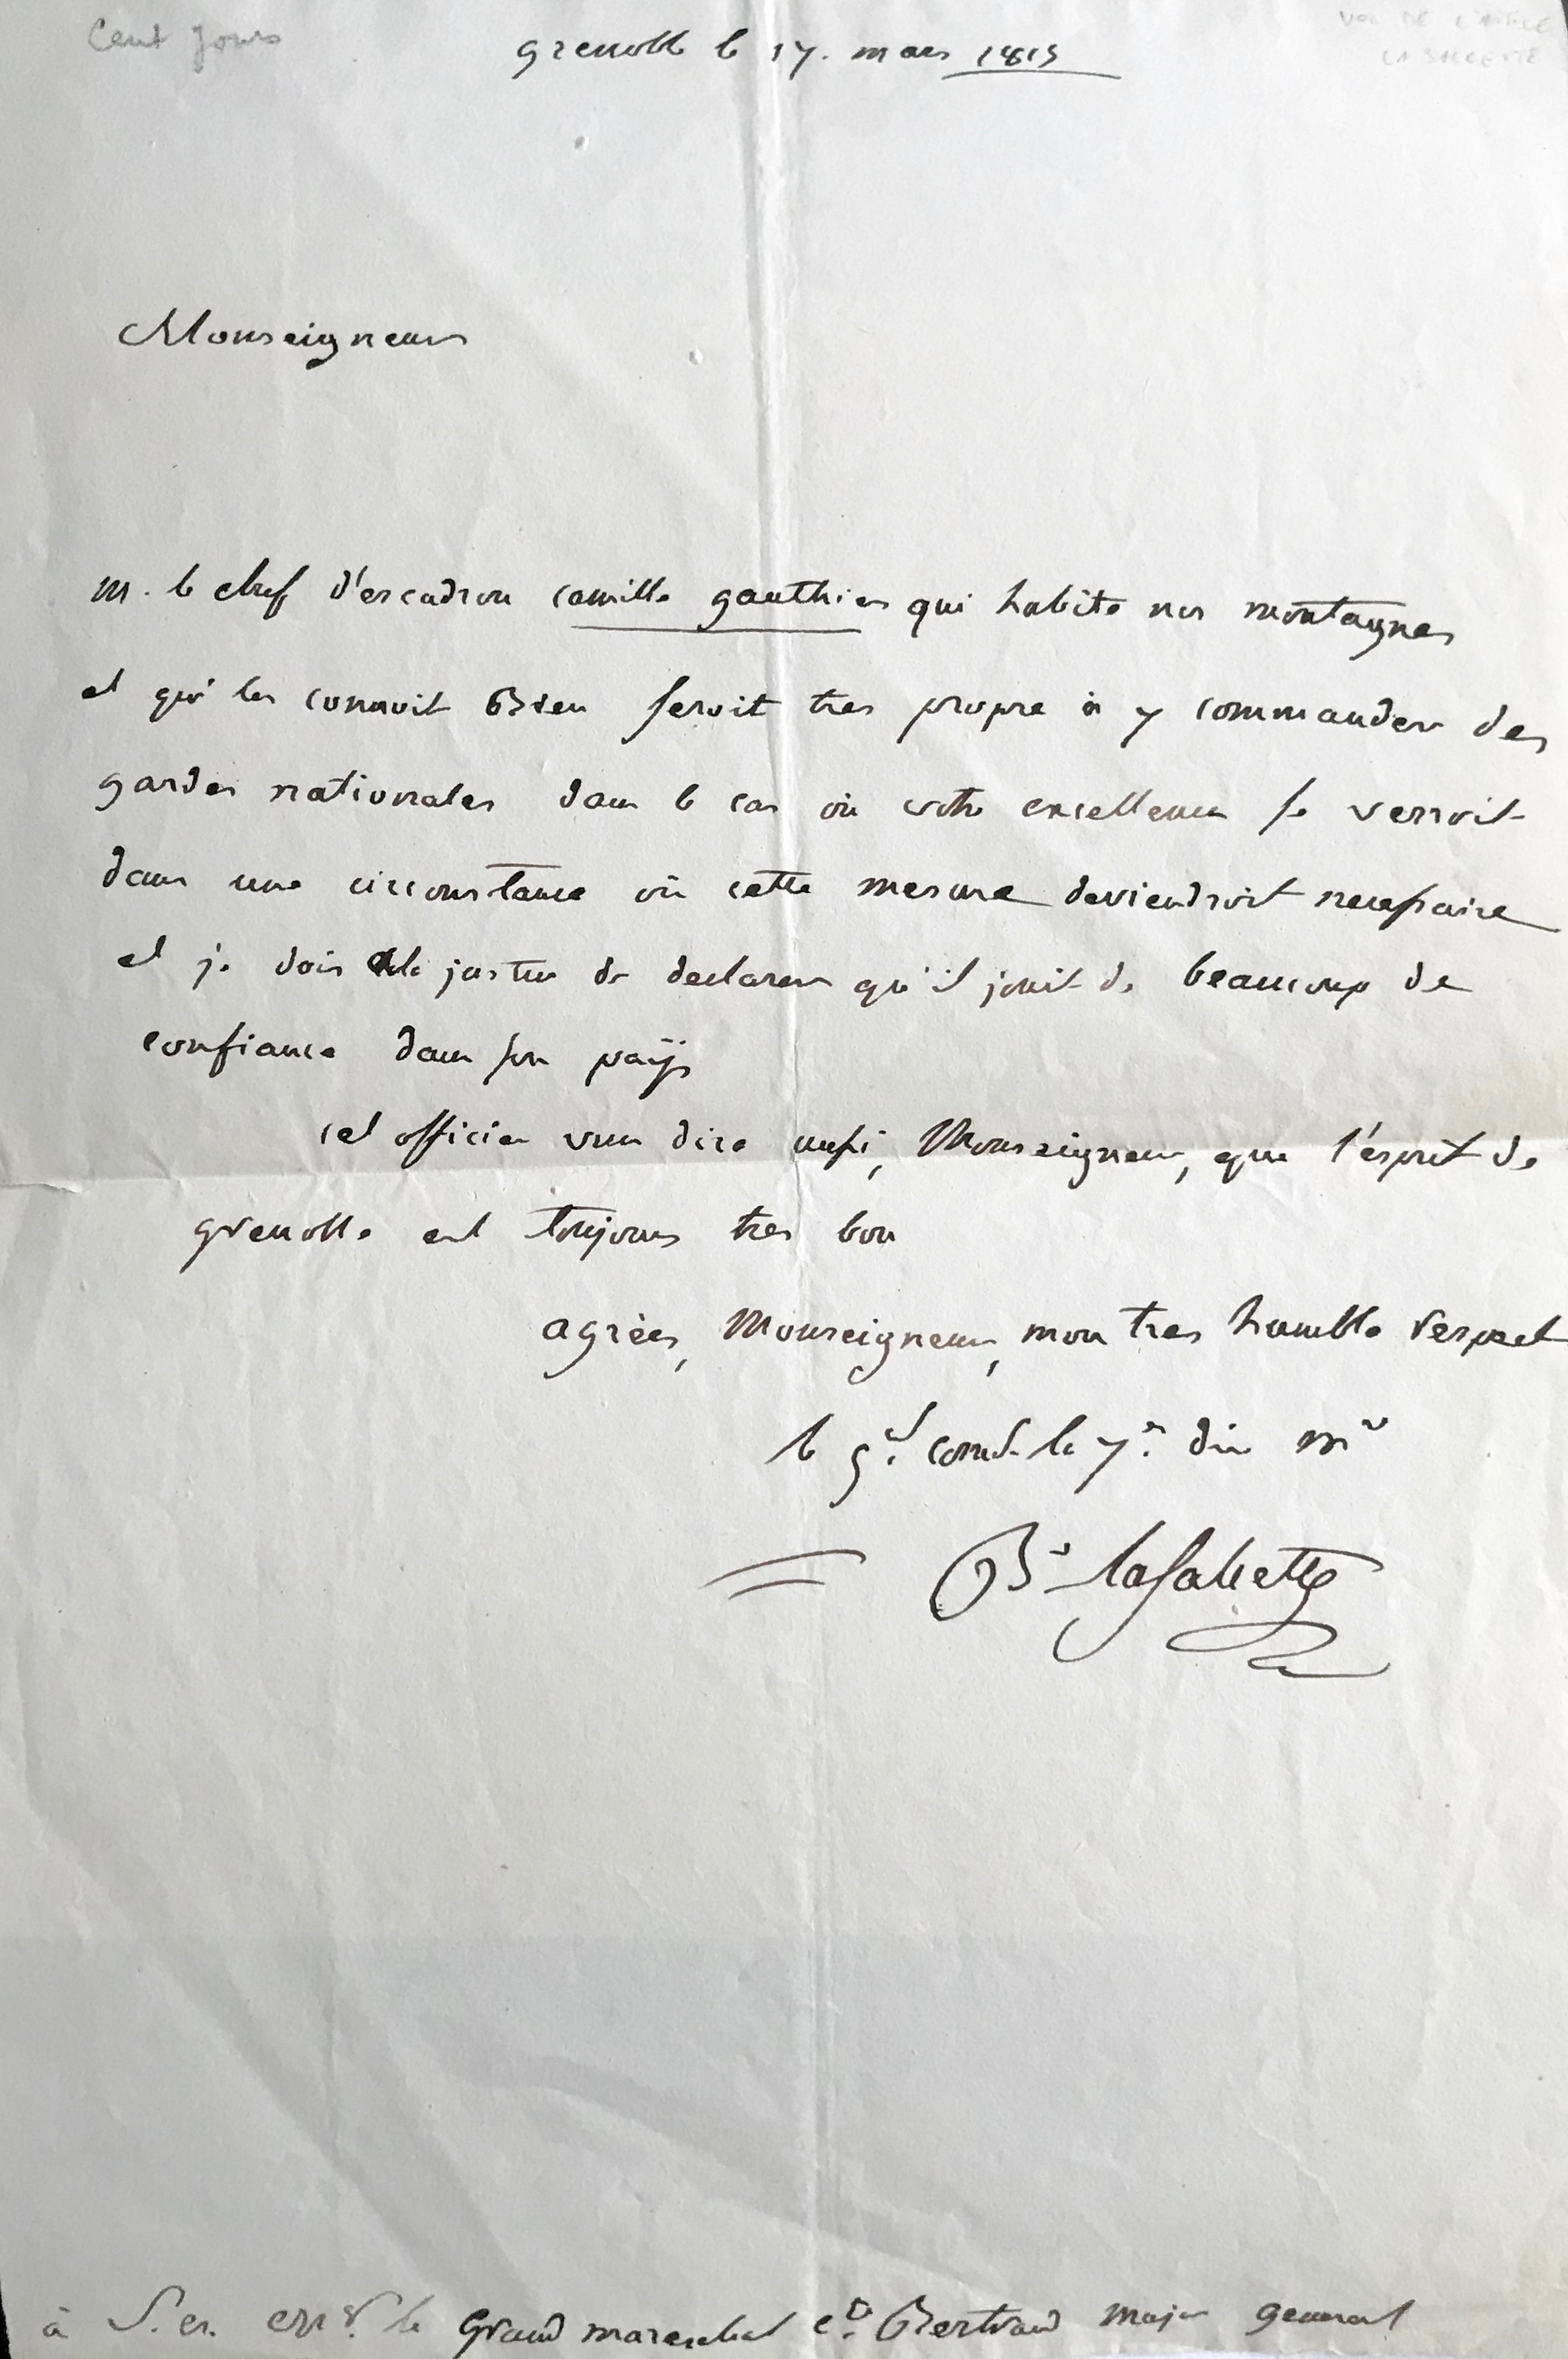 Cent Jours
VOL DE L'AIGLE
LA SALCETTE
grenoble le 17. mars 1815
Monseigneur
m. le chef d'escadron camille gauthier qui habite nos montagnes
et qui les connoit Bien seroit tres propre à y commander des
gardes nationales dans le cas où votre excellence se verroit
dans une circonstance où cette mesure deviendroit necessaire
et je dois justice de declarer qu'il jouit de beaucoup de
confiance dans son païs
cet officier vous dira aussi, Monseigneur, que l'esprit de
grenoble est toujours tres bon
agrées, Monseigneur, mon tres humble respect
le gal. comdt la 7e. div mre
Bon lasalcette
à S. ex. le Grand marechal cte. Bertrand major general